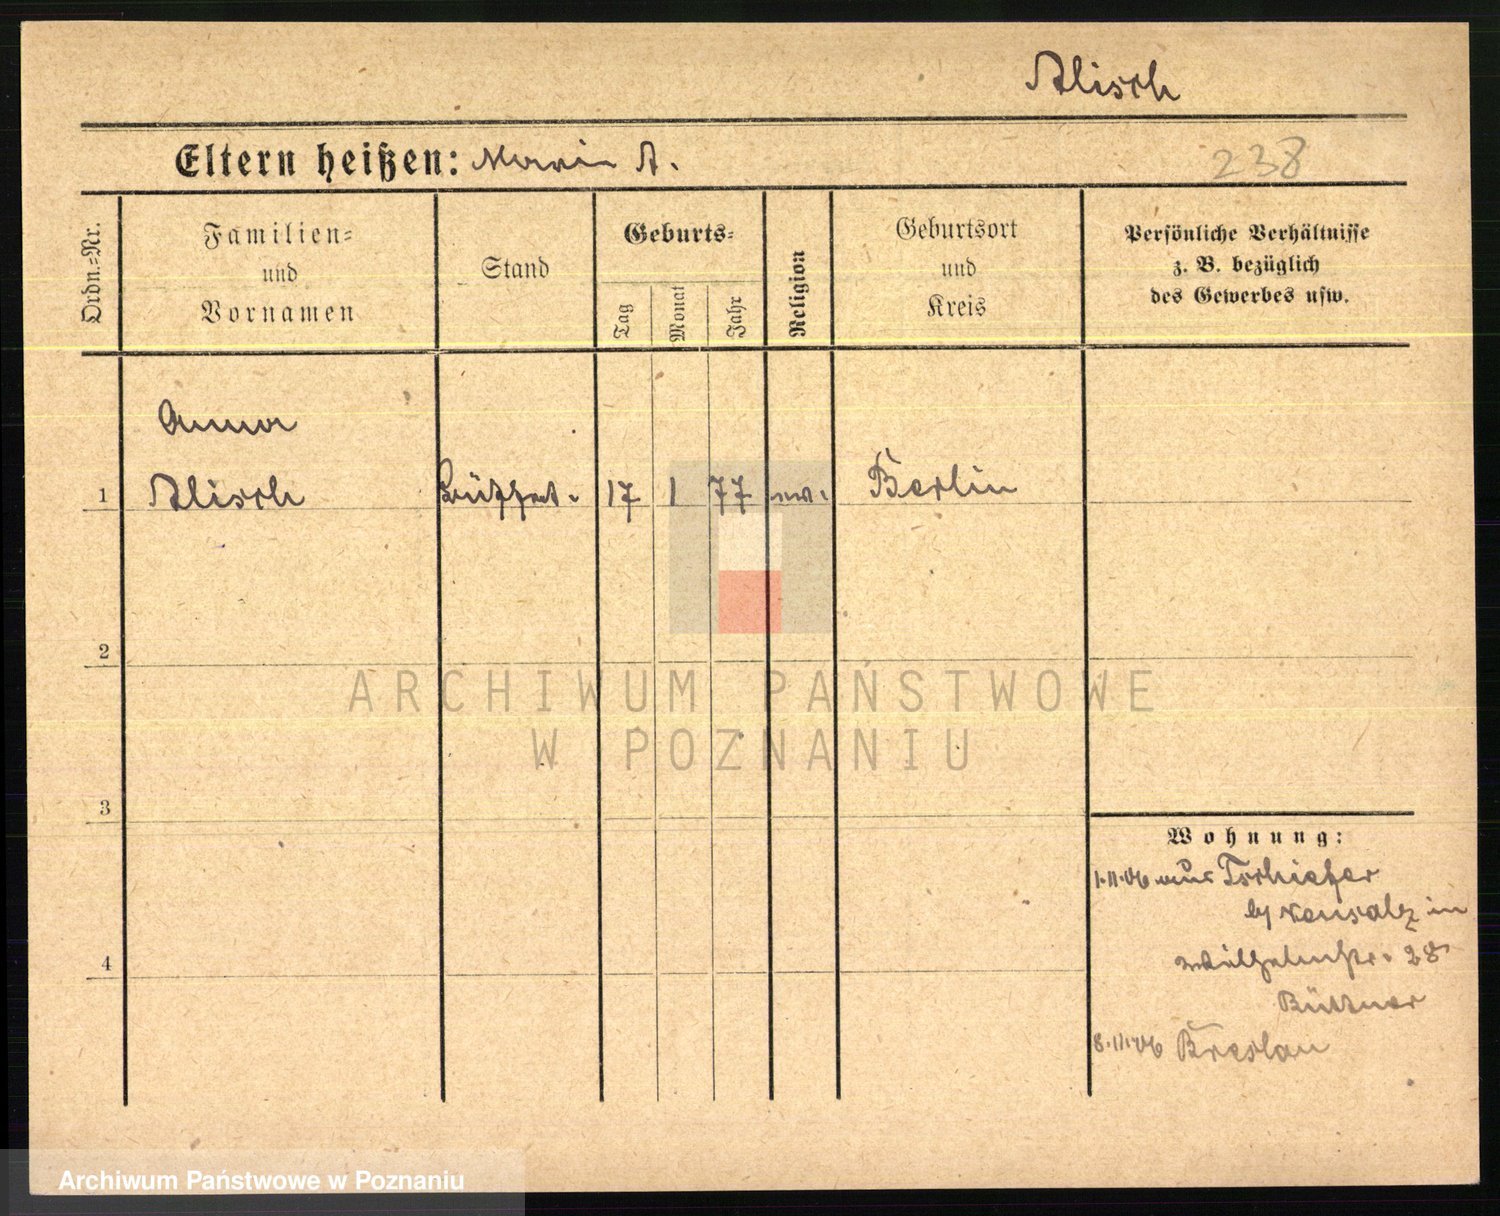 Alisch
Eltern heißen: Maria A.
238
Ordn.-Nr.
Familien-
und
Vornamen
Stand
Geburts-
Tag
Monat
Jahr
Religion
Geburtsort
und
Kreis
Persönliche Verhältnisse
z. B. bezüglich
des Gewerbes usw.
Anna
1 Alisch Büffet. 17 1 77 ev. Berlin
2
3
4
Wohnung:
1.11.06 aus Tschiefer
b/ Neusalz in
Wilhelmstr. 28
Büttner
8.11.06 Breslau
ARCHIWUM PAŃSTWOWE
W POZNANIU
Archiwum Państwowe w Poznaniu